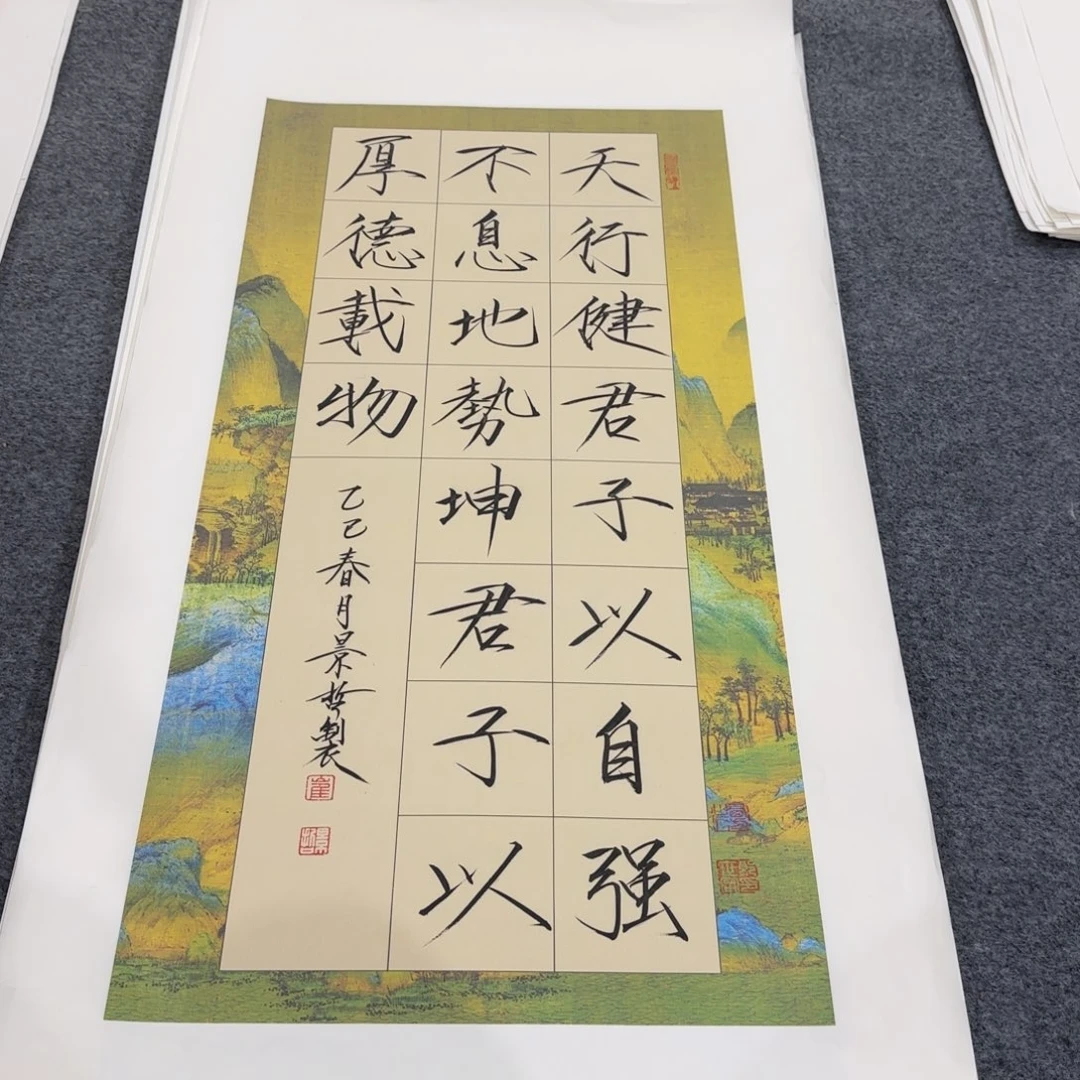 天行健君子以自强
不息地勢坤君子以
厚德載物
乙巳春月景哲製